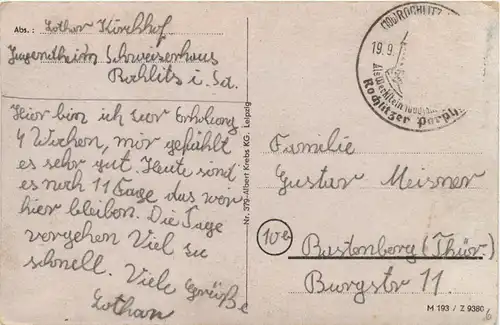 Abs.: Lothar Kirchhof
Jugendheim Schweizerhaus
Rochlitz i. Sa.
Hier bin ich zur Erholung
4 Wochen, mir gefählt
es sehr gut. Heute sind
es noch 11 Tage das wir
hier bleiben. Die Tage
vergehen Viel zu
schnell. Viele Grüße
Lothar
Nr. 379-Albert Krebs KG. Leipzig
(10b) ROCHLITZ
19.9
Als Werkstein
Rochlitzer Porph
Familie
Gustav Meisner
10b
Rastenberg (Thür.)
Burgstr 11.
M 193 / Z 9380